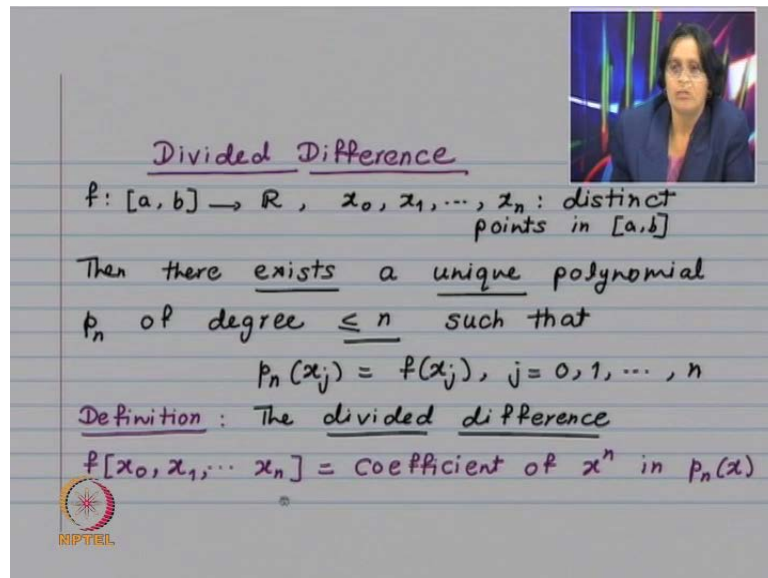 Divided Difference
f: [a, b] → ℝ, x₀, x₁, ⋯, xₙ : distinct
points in [a, b]
Then there exists a unique polynomial
pₙ of degree ≤ n such that
pₙ(xⱼ) = f(xⱼ), j = 0, 1, ⋯, n
Definition : The divided difference
f[x₀, x₁, ⋯ xₙ] = Coefficient of xⁿ in pₙ(x)
NPTEL